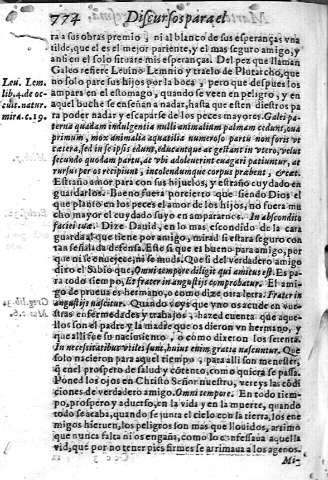 774 Discursos para el
ra a sus obras premio, ni al blanco de sus esperanças vna
tilde, que el es el mejor pariente, y el mas seguro amigo, y
ansi en el solo situare mis esperanças. Del pez que llaman
Galeo refiere Leuino Lemnio y traelo de Plutarcho, que
no solo pare sus hijos por la boca, pero que despues los
ampara en el estomago, quando se veen en peligro, y en
aquel buche se enseñan a nadar, hasta que esten diestros pa
ra poder nadar y escaparse de los peces mayores. Galei pa
terna quadam indulgentia nulli animalium palmam cedunt, oua
primum, mox animalia aquatilia numeroso partu non foris vt
cætera, sed in se ipsis edunt, educantque ac gestant in vtero, velut
secundo quodam partu, at vbi adoleuerint euagari patiuntur, at
rursus per os recipiunt, intolendumque corpus præbent, &cæt.
Estraño amor para con sus hijuelos, y estraño cuydado en
guardarlos. Bueno fuera por cierto que siendo Dios el
que planto en los peces el amor de los hijos, no fuera mu
cho mayor el cuydado suyo en ampararnos. In abscondito
faciei tuæ. Dize Dauid, en lo mas escondido de la cara
guarda al que tiene por amigo, mirad si estara seguro con
tan señalada defensa. Este si que es bueno para amigo, por
que ni se enuejece, ni se muda. Que si del verdadero amigo
diro el Sabio que, Omni tempore diligit qui amicus est. Es pa-
ra todo tiempo, Et frater in angustijs comprobatur. El ami-
go de prueua es hermano, o como dize otra letra: Frater in
angustijs nascitur. Quando veys que vno os acude en vues
tras enfermedades y trabajos, hazed cuenta que aque
llos son el padre y la madre que os dieron vn hermano, y
que alli fue su nacimiento, o como dixeron los setenta.
In necessitatibus vtiles sunt, huius enim gratia nascuntur. Que
solo nacieron para aquel tiempo, para alli son menester,
q̃ en el prospero de salud y cõtento, como quiera se passa.
Poned los ojos en Christo Señor nuestro, vereys las cõdi
ciones de verdadero amigo. Omni tempore. En todo tiem-
po, prospero y aduerso, en la vida y en la muerte, quando
todo se acaba, quando se junta el cielo con la tierra, los ene
migos hieruen, los peligros son mas que llouidos, animo
que nunca falta ni os engaña, como lo confessaua aquella
vid, que por no tener pies firmes se arrimaua a los agenos.
Mi-
Leu. Lem.
lib. 4. de oc-
cult. natur.
mira. c. 19.